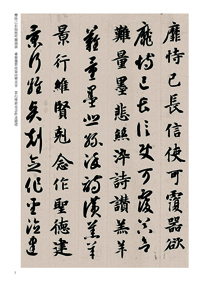 靡恃己長信使可覆器欲
靡恃己長信使可覆器欲
難量墨悲絲淬詩讚羔羊
難量墨悲絲淬詩讚羔羊
景行維賢剋念作聖德建
景行維賢剋念作聖德建